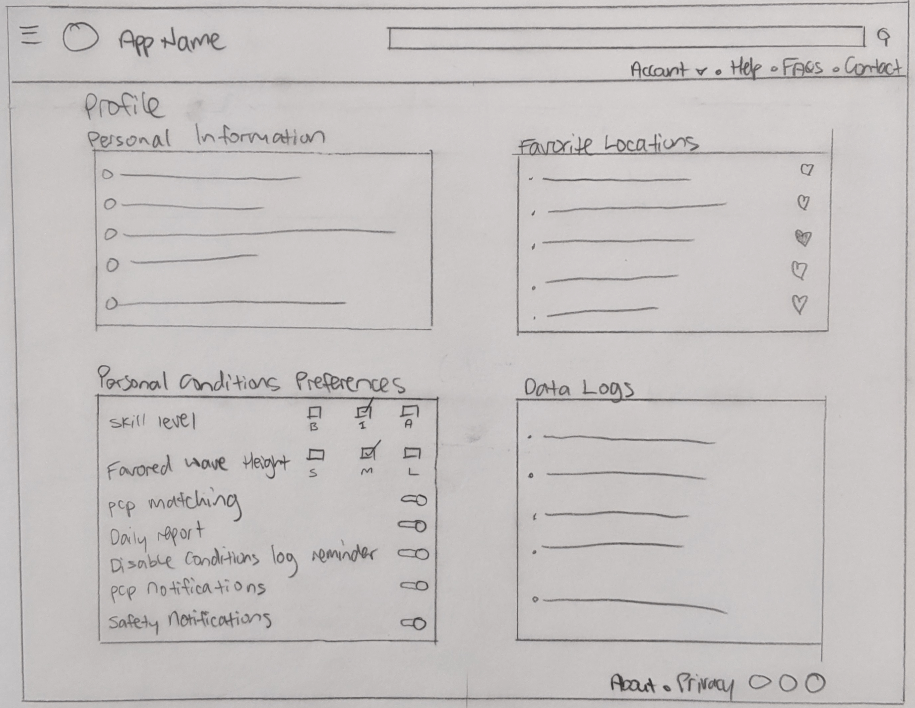 App Name
Account • Help • FAQs • Contact
Profile
Personal Information
Favorite Locations
Personal Conditions Preferences
Skill level
B I A
Favored wave Height
S M L
pcp matching
Daily report
Disable conditions log reminder
pcp notifications
Safety notifications
Data Logs
About • Privacy